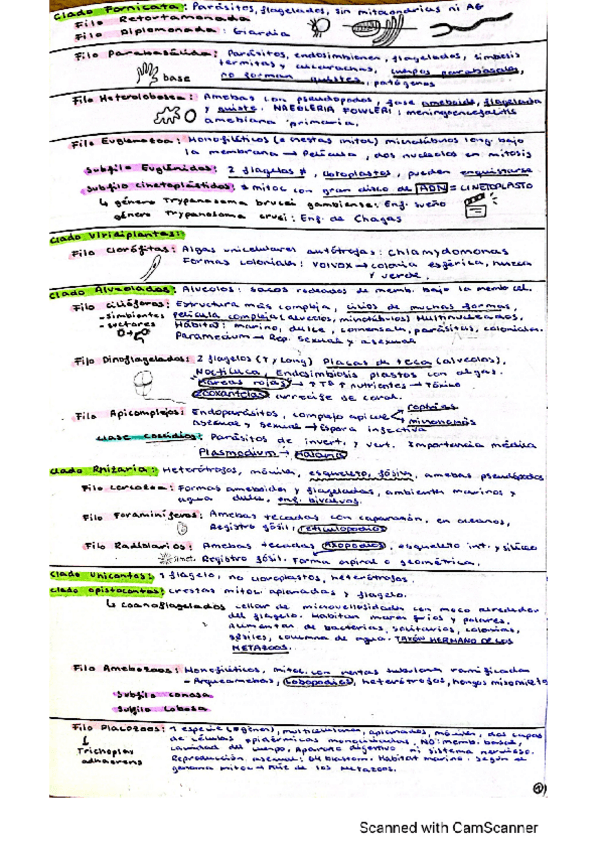 Clado Fornicata: Parásitos, flagelados, sin mitocondrias ni AG
Filo Retortamonada
Filo Diplomonada: Giardia
Filo Parabasálida: Parásitos, endosimbiontes, flagelados, simbiosis
termitas y cucarachas, cuerpos parabasales,
no forman quistes, patógenos
base
Filo Heterolobosea: Amebas con pseudopodos, fase ameboide, flagelada
y quiste. NAEGLERIA FOWLERI: meningoencefalitis
amebiana primaria.
Filo Euglenozoa: Monofiléticos (crestas mitoc) microtúbulos long. bajo
la membrana → Película, dos nucleolos en mitosis
Subfilo Euglénidos: 2 flagelos ≠, cloroplastos, pueden enquistarse
Subfilo cinetoplástidos: mitoc con gran disco de ADN = CINETOPLASTO
↳ género Trypanosoma brucei gambiense: Enf. sueño
género Trypanosoma cruzi: Enf. de Chagas
Clado Viridiplantas:
Filo Clorófitas: Algas unicelulares autótrofas: Chlamydomonas
Formas coloniales: Volvox → colonia esférica, hueca
y verde.
Clado Alveolados: Alveolos: sacos rodeados de memb. bajo la memb cel.
Filo Cilióforos: Estructura más compleja, cilios de muchas formas,
- simbiontes película compleja (alveolos, microtúbulos) Multinucleados,
- suctores Hábitat: marino, dulce, comensales, parásitos, coloniales.
Paramecium → Rep. sexual y asexual
Filo Dinoflagelados: 2 flagelos (T y Long) Placas de teca (alveolos),
Noctiluca, Endosimbiosis plastos con algas.
Mareas rojas → ↑ Tª ↑ nutrientes → Tóxico
Zooxantelas arrecife de coral.
Filo Apicomplejos: Endoparásitos, complejo apical roptrias
micronemas
asexual y sexual → Espora infectiva
Clase Coccidios: Parásitos de invert. y vert. Importancia médica
Plasmodium → Malaria
Clado Rhizaria: Heterótrofos, móviles, esqueleto, fósiles, amebas pseudópodos
Filo Cercozoa: Formas ameboides y flageladas, ambientes marinos y
agua dulce, enf. bivalvos.
Filo Foraminíferos: Amebas tecadas con caparazón, en océanos,
Registro fósil, reticulopodios
Filo Radiolarios: Amebas tecadas axopodios, esqueleto int. y silíceo
Registro fósil. Forma espiral o geométrica.
Clado Unicontas: 1 flagelo, no cloroplastos, heterótrofos.
Clado opistocontas: crestas mitoc. aplanadas y flagelo.
↳ Coanoflagelados collar de microvellosidades con moco alrededor
del flagelo. Habitan mares fríos y polares.
Alimentan de bacterias, solitarios, coloniales,
sésiles, columna de agua. TAXÓN HERMANO DE LOS
METAZOOS.
Filo Amebozoos: Monofiléticos, mitoc. con crestas tubulares ramificadas
- Arqueamebas, Lobopodios, heterótrofos, hongos
Subfilo Conosa
Subfilo Lobosa
Filo Placozoos: 1 especie, multicelulares, aplanados, móviles, dos capas
↓ de células epidérmicas monociliadas. NO: memb. basal,
Trichoplax cavidad del cuerpo, Aparato digestivo ni sistema nervioso.
adhaerens Reproducción asexual; Habitat marino. Según el
genoma mitoc → Raíz de los Metazoos.
Scanned with CamScanner